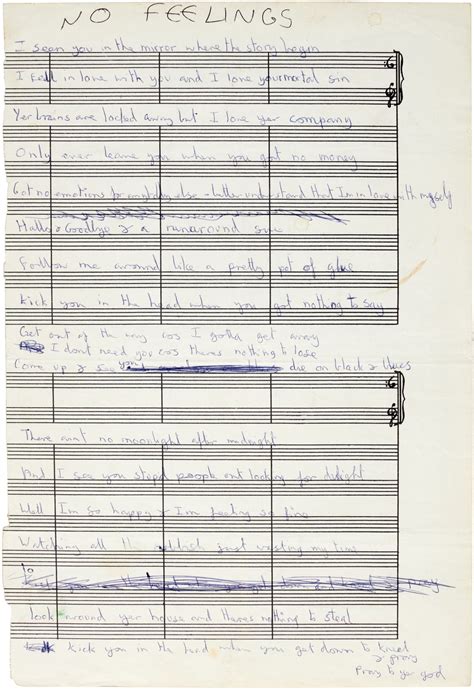 NO FEELINGS
I seen you in the mirror where the story begin
I fell in love with you and I love your mortal sin
Yer brains are locked away but I love yer company
Only ever leave you when you got no money
Got no emotions for anybody else - better understand that Im in love with myself
Hallo & Goodbye & a runaround sue
Follow me around like a pretty pot of glue
Kick you in the head when you got nothing to say
Get out of the way cos I gotta get away
I dont need you cos theres nothing to lose
Come up & see die on black & blues
There aint no moonlight after midnight
And I see you stupid people out looking for delight
Well Im so happy & Im feeling so fine
Watching all the rubbish just wasting my time
look around yer house and theres nothing to steal
kick you in the head when you get down to kneed
& pray
Pray to yer god